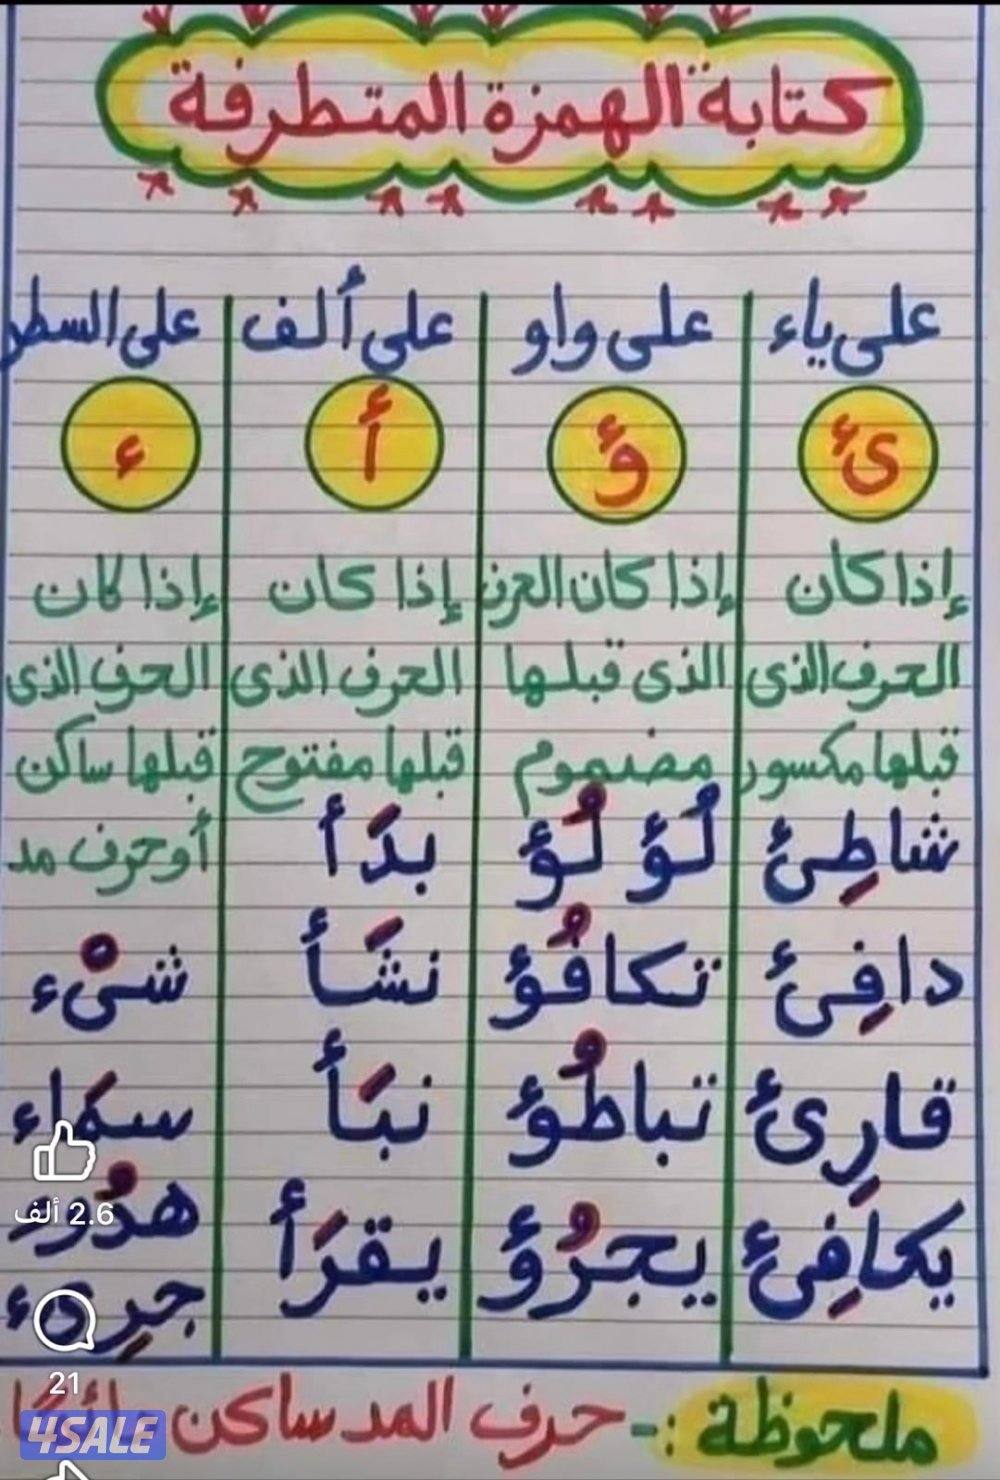 كتابة الهمزة المتطرفة
على ياء
ئ
إذا كان
الحرف الذى
قبلها مكسور
شاطِئ
دافِئ
قارِئ
يكافِئ
على واو
ؤ
إذا كان الحرف
الذى قبلها
مضموم
لُؤلُؤ
تكافُؤ
تباطُؤ
يجرُؤ
على ألف
أ
إذا كان
الحرف الذى
قبلها مفتوح
بدَأ
نشَأ
نبَأ
يقرَأ
على السطر
ء
إذا كان
الحرف الذى
قبلها ساكن
أو حرف مد
شىْء
سماء
هدُوء
جرِىء
ملحوظة :- حرف المد ساكن
2.6 ألف
21
4SALE